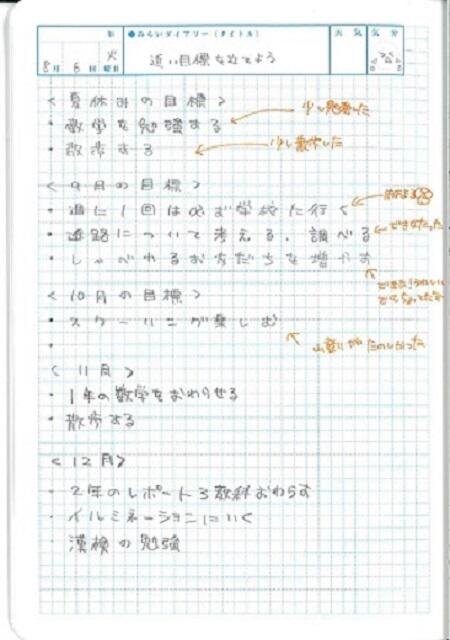 年 ●みらいダイアリー(タイトル) 天気 気分
8月 6日 火曜日 近い目標を立てよう
<夏休みの目標>
・数学を勉強する 少し勉強した
・散歩する 少し散歩した
<9月の目標>
・週に1回は必ず学校に行く
・進路について考える、調べる できなかった
・しゃべれるお友だちを増やす
<10月の目標>
・スクーリング楽しむ
・ 山登りがたのしかった
<11月>
・1年の数学をおわらせる
・散歩する
<12月>
・2年のレポート3教科おわらす
・イルミネーションにいく
・漢検の勉強